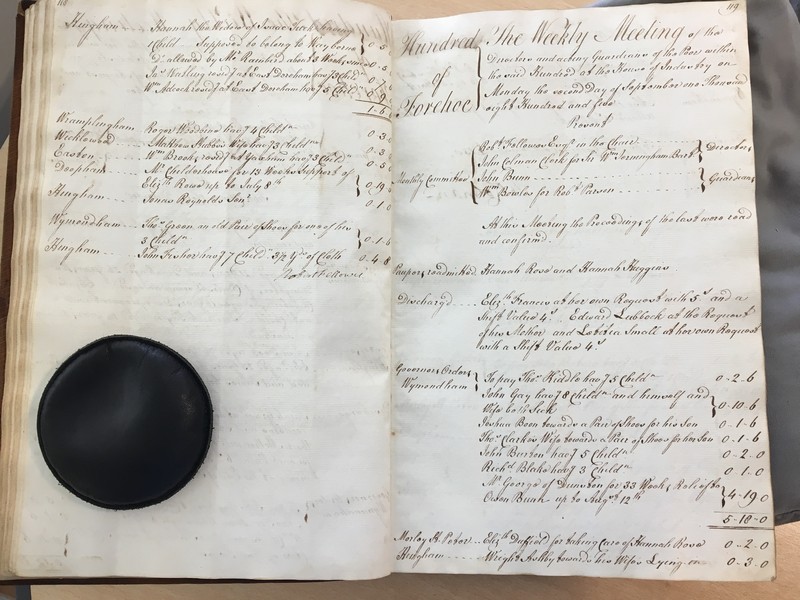 118
Hingham Hannah the Widow of Isaac Turk
Child Supposed to belong to Kay borne 0-5
Dº allowed by Mr. Rainbird about 3 Weeks since 0-5
Jnº Watley resdt. at East Dereham havg 7 Childn 0-7
Wm. Adcock resdt. at East Dereham havg 5 Childn 0-9
1-6
Wramplingham Roger Woodbine havg 4 Childn 0-3
Wicklewood Matthew Wife havg 3 Childn 0-3
Easton Wm. Brook resdt. at havg 3 Childn 0-5
Deopham Mr. Childerhouse for 13 Weeks Support of
Elizth. Rowe up to July 8th 0-19
Hingham Jonas Reynolds's Son 0-1 0
Wymondham Thos. Green an old Pair of Shoes for one of his
3 Childn 0-1-6
Hingham John Fisher havg 7 Childn 3½ Yds. of Cloth 0-4-8
Robt. Fellowes
119
Hundred of Forehoe
The Weekly Meeting of the
Directors and acting Guardians of the Poor within
the said Hundred at the House of Industry on
Monday the second Day of September one Thousand
eight Hundred and five
Present
Monthly Committee
Robt. Fellowes Esqr. in the Chair
John Colman Clerk for Sr. Wm. Jerningham Bart. Directors
John Bunn
Wm. Bowles for Robt. Parson Guardians
At this Meeting the Proceedings of the last were read
and confirm'd
Paupers readmitted Hannah Rose and Hannah Huggins
Discharg'd Elizth. Frances at her own Request with 5s. and a
Shift Value 4s. Edward Lubbock at the Request
of his Mother and Letitia Small at her own Request
with a Shift Value 4s.
Governors Orders
Wymondham To pay Thos. Kiddle havg 5 Childn 0-2-6
John Gay havg 8 Childn and himself and
Wife both Sick 0-10-6
Joshua Been towards a Pair of Shoes for his Son 0-1-6
Thos. Clarke's Wife towards a Pair of Shoes for her Son 0-1-6
John Burton havg 5 Childn 0-2-0
Richd. Blake havg 3 Childn 0-1-0
Mr. George of Dunston for 33 Weeks Relief to
Owen Buan up to Augst. 12th 4-19 0
5-18-0
Morley St. Peter Elizth. Duffield for taking Care of Hannah Rose 0-2-0
Hingham Wright Ashby towards his Wifes Lying in 0-3-0